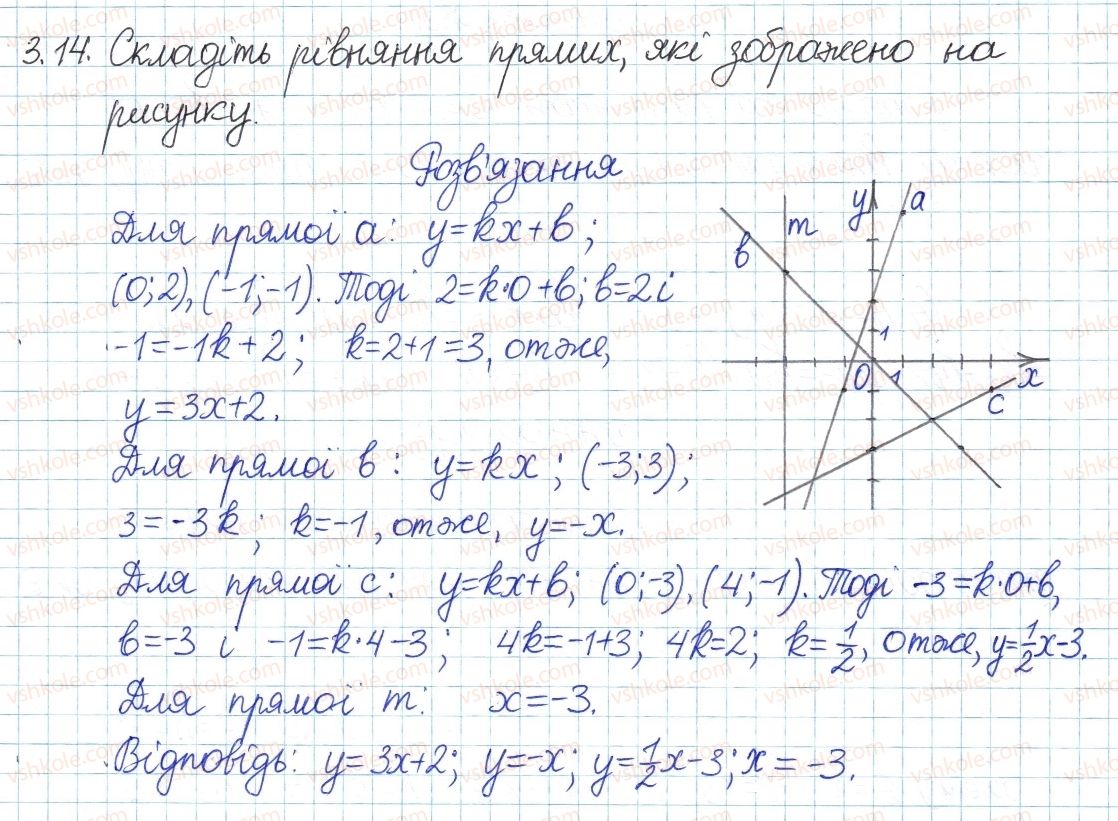 3.14. Складіть рівняння прямих, які зображено на
рисунку.
Розв'язання
Для прямої a: y=kx+b;
(0;2), (-1;-1). Тоді 2=k·0+b; b=2 і
-1=-1k+2; k=2+1=3, отже,
y=3x+2.
Для прямої b: y=kx; (-3;3);
3=-3k; k=-1, отже, y=-x.
Для прямої c: y=kx+b; (0;-3), (4;-1). Тоді -3=k·0+b,
b=-3 і -1=k·4-3; 4k=-1+3; 4k=2; k=1/2, отже, y=1/2x-3.
Для прямої m: x=-3.
Відповідь: y=3x+2; y=-x; y=1/2x-3; x=-3.
b
m
y
a
1
0
1
x
c
vshkole.com